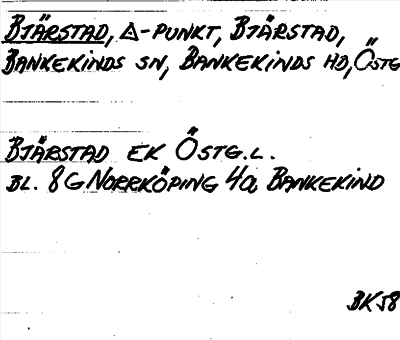 BJÄRSTAD, △-PUNKT, BJÄRSTAD,
BANKEKINDS SN, BANKEKINDS HD, ÖSTG
BJÄRSTAD EK ÖSTG.L.
BL. 8G NORRKÖPING 4a, BANKEKIND
BK58